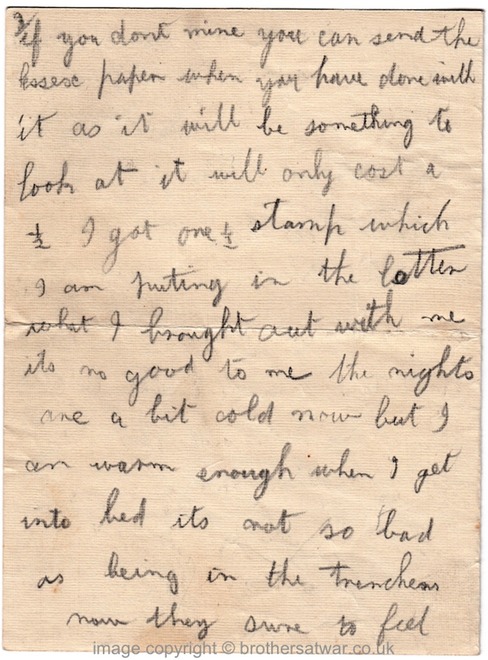 2/
if you dont mine you can send the
Essesc paper when you have done with
it as it will be something to
look at it will only cost a
½ I got one ½ stamp which
I am puting in the lotter
what I brought out with me
its no good to me the nights
are a bit cold now but I
am warm enough when I get
into bed its not so bad
as being in the trenchens
now they sure to feel
image copyright © brothersatwar.co.uk